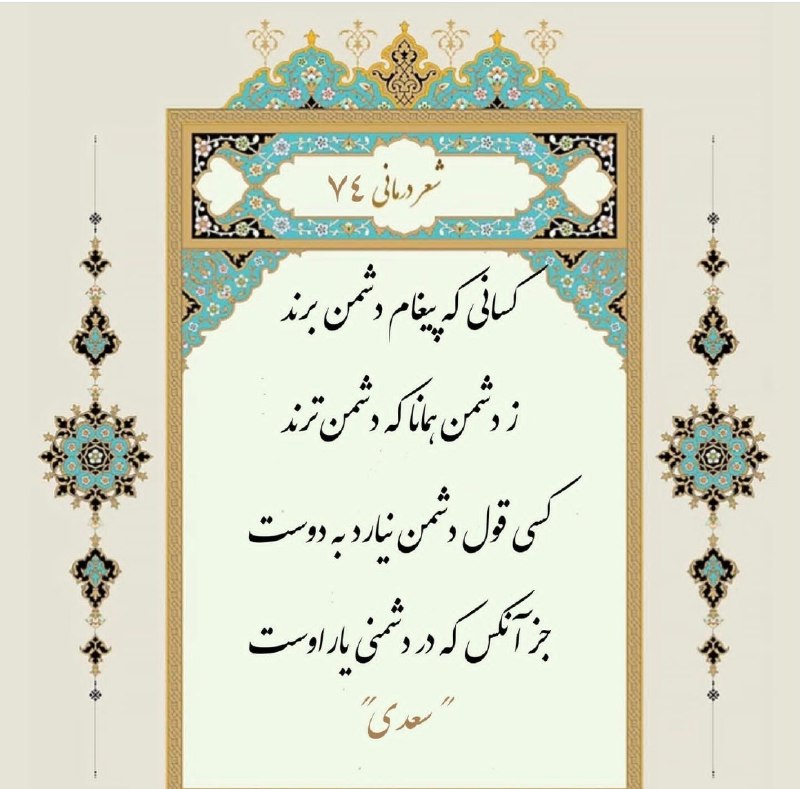 شعر درمانی ٧٤
کسانی که پیغام دشمن برند
ز دشمن همانا که دشمن ترند
کسی قول دشمن نیارد به دوست
جز آنکس که در دشمنی یار اوست
"سعدی"